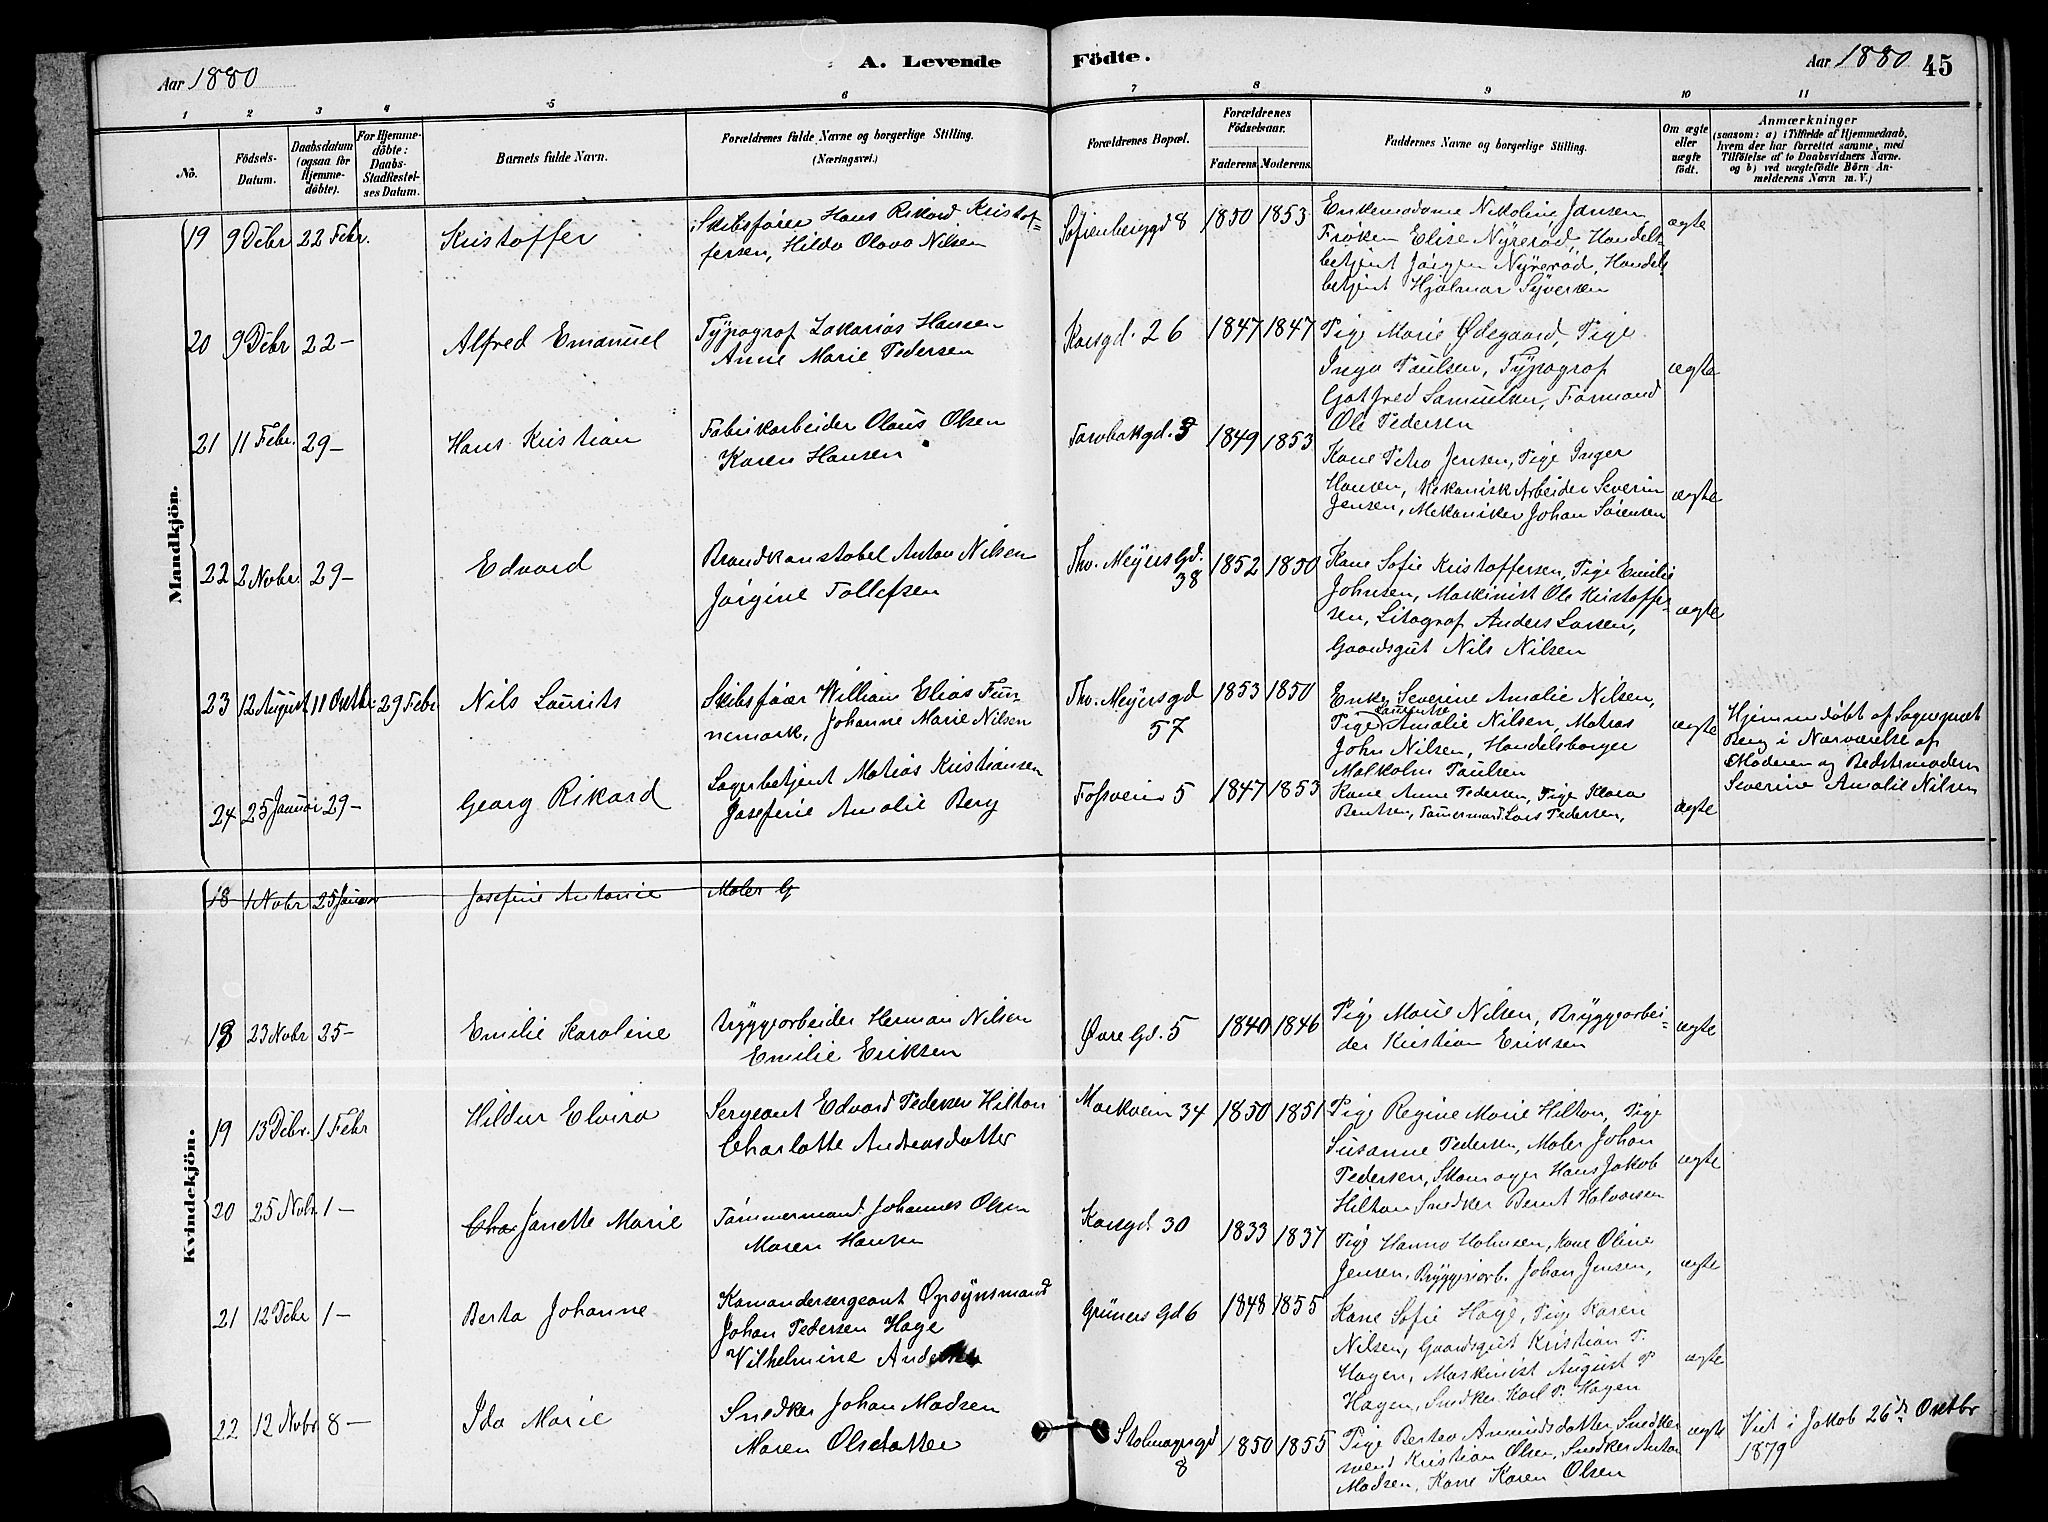 Aar 1880
A. Levende
Födte.
Aar 1880 45
1 2 3 4 5 6 7 8 9 10 11
No.
Födsels-
Datum.
Daabsdatum
(ogsaa for
Hjemme-
döbte).
For Hjemme-
döbte:
Daabs-
Stadfæstel-
ses Datum.
Barnets fulde Navn.
Forældrenes fulde Navne og borgerlige Stilling.
(Næringsvei.)
Forældrenes Bopæl.
Forældrenes
Födselsaar.
Faderens. Moderens.
Faddernes Navne og borgerlige Stilling.
Om ægte
eller
uægte
födt.
Anmærkninger
(saasom: a) i Tilfælde af Hjemmedaab,
hvem der har forrettet samme, med
Tilföielse af to Daabsvidners Navne.
og b) ved uægtefödte Börn An-
melderens Navn m. V.)
Mandkjön.
19 9 Debr 22 Febr. Kristoffer
Skibsfører Hans Rikard Kristof-
fersen, Hilda Olava Nilsen
Sofienberggd 8 1850 1853
Enkemadame Nikoline Jansen
Frøken Elise Nyrerød, Handels-
betjent Jørgen Nyrerød, Handels
betjent Hjalmar Syversen
ægte
20 9 Debr 22 - Alfred Emanuel
Typograf Zakarias Hansen
Anne Marie Pedersen
Korsgd. 26 1847 1847
Pige Marie Ødegaard, Pige
Inga Paulsen, Typograf
Gotfred Samuelsen, Formand
Ole Pedersen
ægte
21 11 Febr. 29 - Hans Kristian
Fabrikarbeider Olaus Olsen
Karen Hansen
1849 1853
Kone Petra Jensen, Pige Inger
Hansen, Mekanisk Arbeider Severin
Jensen, Mekaniker Johan Sørensen
ægte
22 2 Nobr. 29 - Edvard
Brandkonstabel Anton Nilsen
Jørgine Tollefsen
Thv. Meyers Gd.
38
1852 1850
Kone Sofie Kristoffersen, Pige Emilie
Johnsen, Maskinist Ole Kristoffer-
sen, Litograf Anders Larsen,
Gaardsgut Nils Nilsen
ægte
23 12 August 11 Oktbr 29 Febr Nils Laurits
Skibsfører William Elias Fun-
nemark, Johanne Marie Nilsen
Thv. Meyersgd
57
1853 1850
Enke Severine Amalie Nilsen,
Pige Laurentse Amalie Nilsen, Matros
John Nilsen, Handelsborger
Malkolm Paulsen
ægte
Hjemmedøbt af Sogneprest
Berg i Nærværelse af
Moderen og Bedstemoderen
Severine Amalie Nilsen
24 25 Januar 29 - Georg Rikard
Lagerbetjent Matias Kristiansen
Josefine Amalie Berg
Fossveien 5 1847 1853
Kone Anne Pedersen, Pige Klara
Bentsen, Tømermand Lars Pedersen,
ægte
Kvindekjön.
18 1 Nobr 25 Januar Josefine Antonie Maler G
18 23 Nobr 25 - Emilie Karoline
Bryggearbeider Herman Nilsen
Emilie Eriksen
Øvre Gd. 5 1840 1846
Pige Marie Nilsen, Bryggearbei-
der Kristian Eriksen
ægte
19 13 Debr. 1 Febr Hildur Elvira
Sergeant Edvard Pedersen Hilton
Charlotte Andreasdatter
Markveien 34 1850 1851
Pige Regine Marie Hilton, Pige
Susanne Pedersen, Maler Johan
Pedersen, Skomager Hans Jakob
Hilton Snedker Bernt Halvorsen
ægte
20 25 Nobr 1 - Cha Janette Marie
Tømmermand Johannes Olsen
Maren Hansen
Korsgd. 30 1833 1837
Pige Hanna Holmsen, Kone Oline
Jensen, Bryggeriarb. Johan Jensen,
ægte
21 12 Debr 1 - Berta Johanne
Kommandersergeant Opsynsmand
Johan Pedersen Hage
Vilhelmine Andersen
Grüners Gd 6 1848 1855
Kone Sofie Hage, Pige Karen
Nilsen, Gaardsgut Kristian P.
Hagen, Maskinist August P.
Hagen, Snedker Karl P. Hagen
ægte
22 12 Nobr 8 - Ida Marie
Snedker Johan Madsen
Maren Olsdatter
Stolmagergd
8
1850 1855
Pige Bertea Amundsdatter, Snedker
svend Kristian Olsen, Snedker Anton
Madsen, Kone Karen Olsen
ægte
Viet i Jakob 26de Oktbr
1879